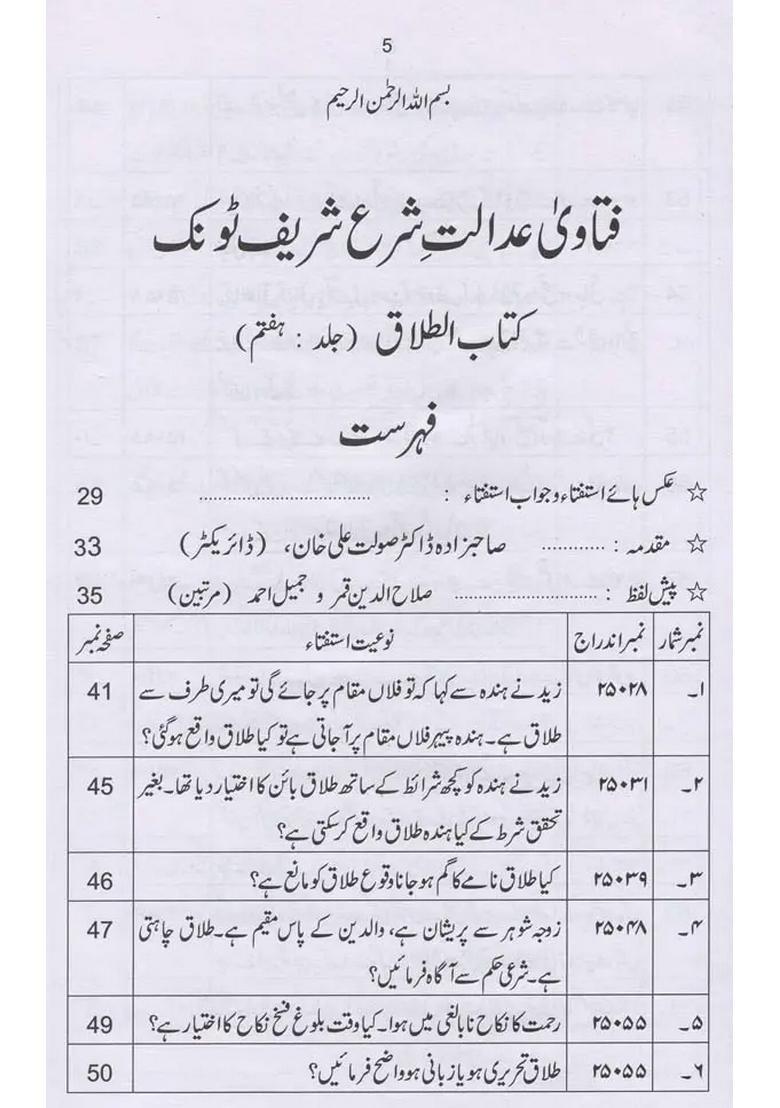 5
بسم اللہ الرحمٰن الرحیم
فتاویٰ عدالتِ شرع شریف ٹونک
کتاب الطلاق (جلد : ہفتم)
فہرست
☆ عکس ہائے استفتاء و جواب استفتاء : .................... 29
☆ مقدمہ : ........... صاحبزادہ ڈاکٹر صولت علی خان، (ڈائریکٹر) 33
☆ پیش لفظ : .................... صلاح الدین قمر و جمیل احمد (مرتبین) 35
نمبر شمار نمبر اندراج نوعیت استفتاء صفحہ نمبر
۱۔ ۲۵۰۲۸ زید نے ہندہ سے کہا کہ تو فلاں مقام پر جائے گی تو میری طرف سے 41
طلاق ہے۔ ہندہ پیہر فلاں مقام پر آجاتی ہے تو کیا طلاق واقع ہوگئی؟
۲۔ ۲۵۰۳۱ زید نے ہندہ کو کچھ شرائط کے ساتھ طلاق بائن کا اختیار دیا تھا۔ بغیر 45
تحقق شرط کے کیا ہندہ طلاق واقع کرسکتی ہے؟
۳۔ ۲۵۰۳۹ کیا طلاق نامے کا گم ہوجانا وقوع طلاق کو مانع ہے؟ 46
۴۔ ۲۵۰۴۸ زوجہ شوہر سے پریشان ہے، والدین کے پاس مقیم ہے۔ طلاق چاہتی 47
ہے۔ شرعی حکم سے آگاہ فرمائیں؟
۵۔ ۲۵۰۵۵ رحمت کا نکاح نابالغی میں ہوا۔ کیا وقت بلوغ فسخ نکاح کا اختیار ہے؟ 49
۶۔ ۲۵۰۵۵ طلاق تحریری ہو یا زبانی ہو واضح فرمائیں؟ 50